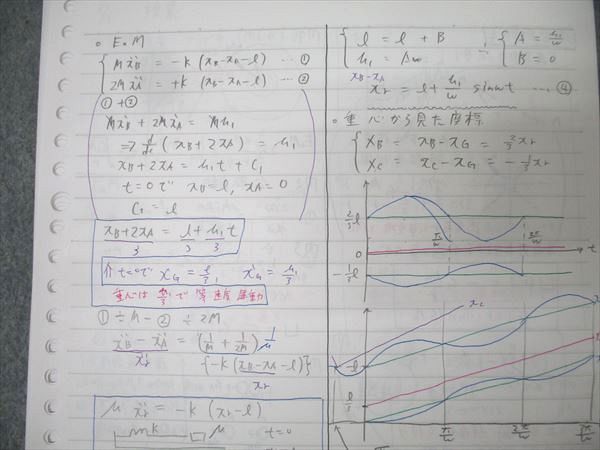 ○ E.M
Mẍ_B = −k (x_B−x_A−l) … ①
2Mẍ_A = +k (x_B−x_A−l) … ②
①+②
Mẍ_B + 2Mẍ_A =
⇒ d/dt (x_B + 2x_A) = u_1
x_B + 2x_A = u_1 t + C_1
t=0で x_B=l, x_A=0
C_1 = l
(x_B+2x_A)/3 = l/3 + (u_1/3) t
t=0で x_G = l/3, ẋ_G = u_1/3
重心は u_1/3 で等速度運動
① ÷ M − ② ÷ 2M
ẍ_B − ẍ_A = (1/M + 1/2M) {−k (x_B−x_A−l)}
ẍ_r 1/μ x_r
μ ẍ_r = −k (x_r−l)
mk μ t=0
l = l + B
u_1 = Aω
∴ A = u_1/ω
B = 0
x_B−x_A
x_r = l + u_1/ω sinωt … ④
○ 重心から見た座標
X_B = x_B − x_G = 2/3 x_r
X_C = x_C − x_G = −1/3 x_r
2/3 l
π/ω 2π/ω
0 t
−1/3 l
x_C
l
l/3
π/ω 2π/ω 3π/ω